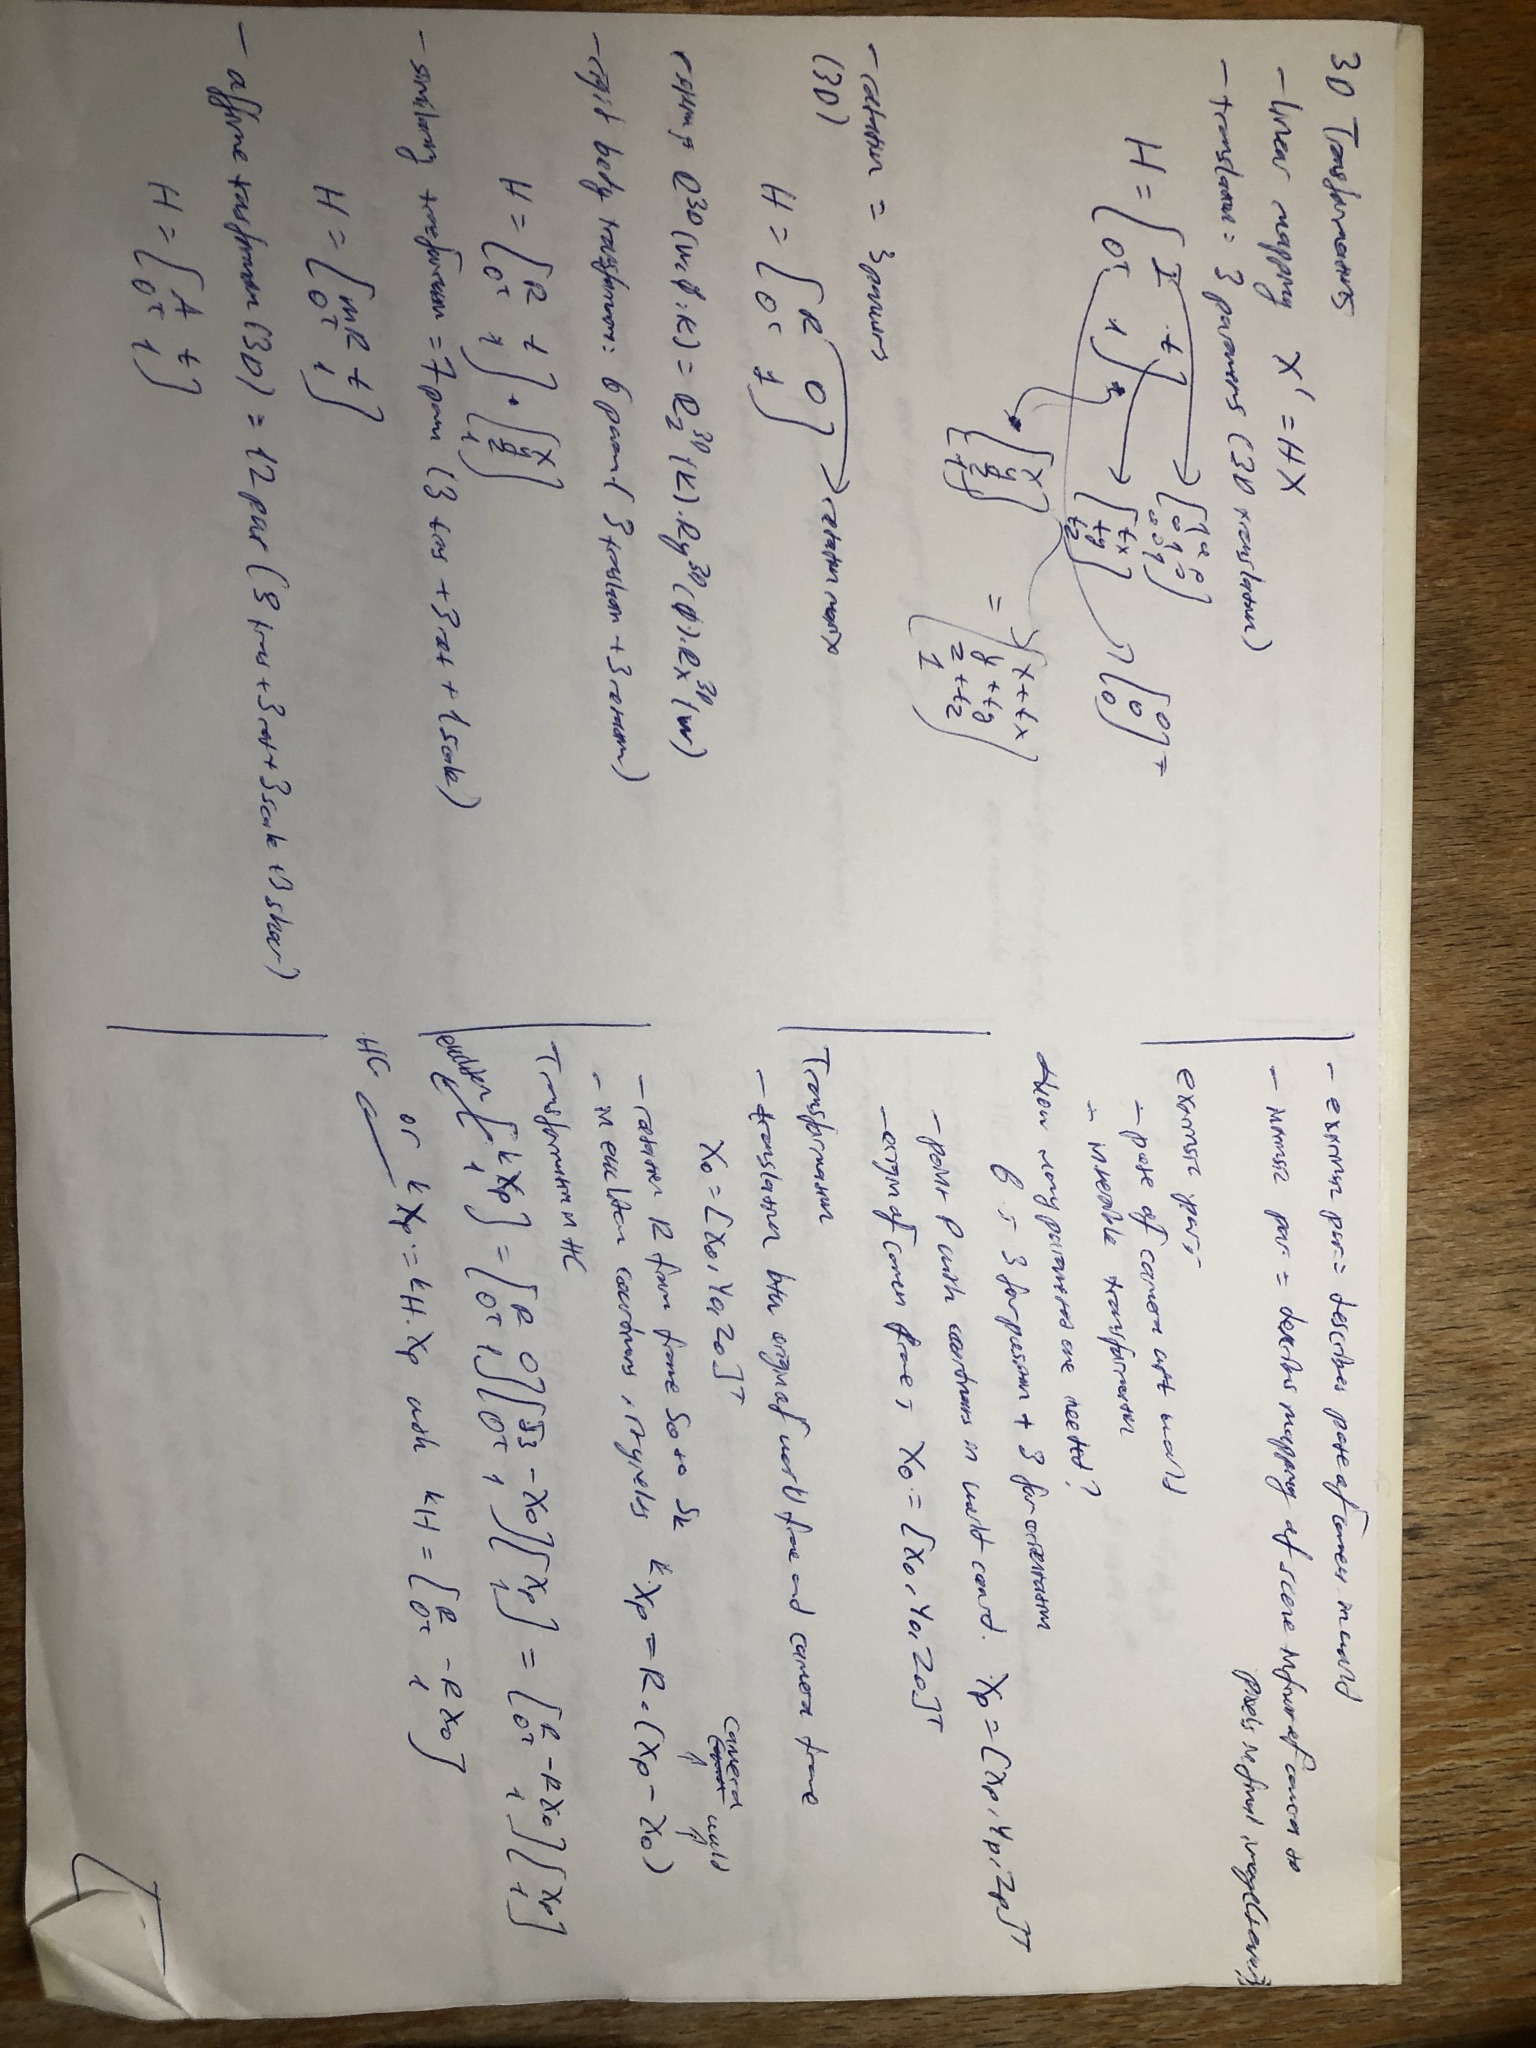 3D Transformations
- linear mapping X' = HX
- translation = 3 parameters (3D translation)
H = [I t; 0ᵀ 1]
[1 0 0; 0 1 0; 0 0 1]
[tx; ty; tz]
[0; 0; 0]ᵀ
[x; y; z; 1] = [x+tx; y+ty; z+tz; 1]
- rotation = 3 params
(3D)
H = [R 0; 0ᵀ 1] → rotation matrix
R³ᴰ(ω, φ, κ) = Rz³ᴰ(κ) · Ry³ᴰ(φ) · Rx³ᴰ(ω)
- rigid body transformation: 6 param ( 3 translation + 3 rotation)
H = [R t; 0ᵀ 1] · [x; y; z; 1]
- similarity transformation = 7 param (3 trans + 3 rot + 1 scale)
H = [mR t; 0ᵀ 1]
- affine transformation (3D) = 12 par (3 trans + 3 rot + 3 scale + 3 shear)
H = [A t; 0ᵀ 1]
- extrinsic par = describes pose of camera in world
- intrinsic par = describes mapping of scene in front of camera to
pixels in final image
extrinsic par:
- pose of camera wrt world
- invertible transformation
How many parameters are needed?
6 : 3 for position + 3 for orientation
- point P with coordinates in world coord. Xp = [Xp, Yp, Zp]ᵀ
- origin of camera frame: X0 = [X0, Y0, Z0]ᵀ
Transformation
- translation btw origin of world frame and camera frame
X0 = [X0, Y0, Z0]ᵀ
- rotation R from frame S0 to Sk
camera world
- in euclidean coordinates, it yields ᵏXp = R · (Xp - X0)
Transformation in HC
[ᵏXp; 1] = [R 0; 0ᵀ 1] [I3 -X0; 0ᵀ 1] [Xp; 1] = [R -RX0; 0ᵀ 1] [Xp; 1]
HC or ᵏXp = ᵏH · Xp with ᵏH = [R -RX0; 0ᵀ 1]